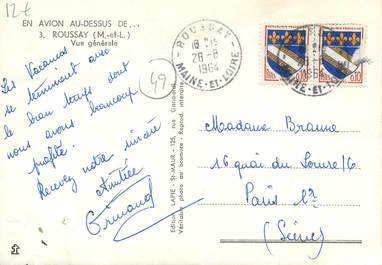 12€
EN AVION AU-DESSUS DE...
3. ROUSSAY (M.-et-L.)
Vue générale
49
Les Vacances
se terminent avec
le beau temps dont
nous avons beaucoup
profité.
Recevez notre sincère
Amitiée
Edition LAPIE - St-MAUR - 125, rue
Véritable photo au bromure - Reprod. interdite
ROUSSAY
18 H 15
28-8
1964
MAINE-ET-LOIRE
REPUBLIQUE FRANÇAISE
0,10
ROUSSAY
1964
MAINE-ET-LOIRE
REPUBLIQUE FRANÇAISE
0,10
Madame Branne
16 quai du Louvre 16
Paris 1er
(Seine)